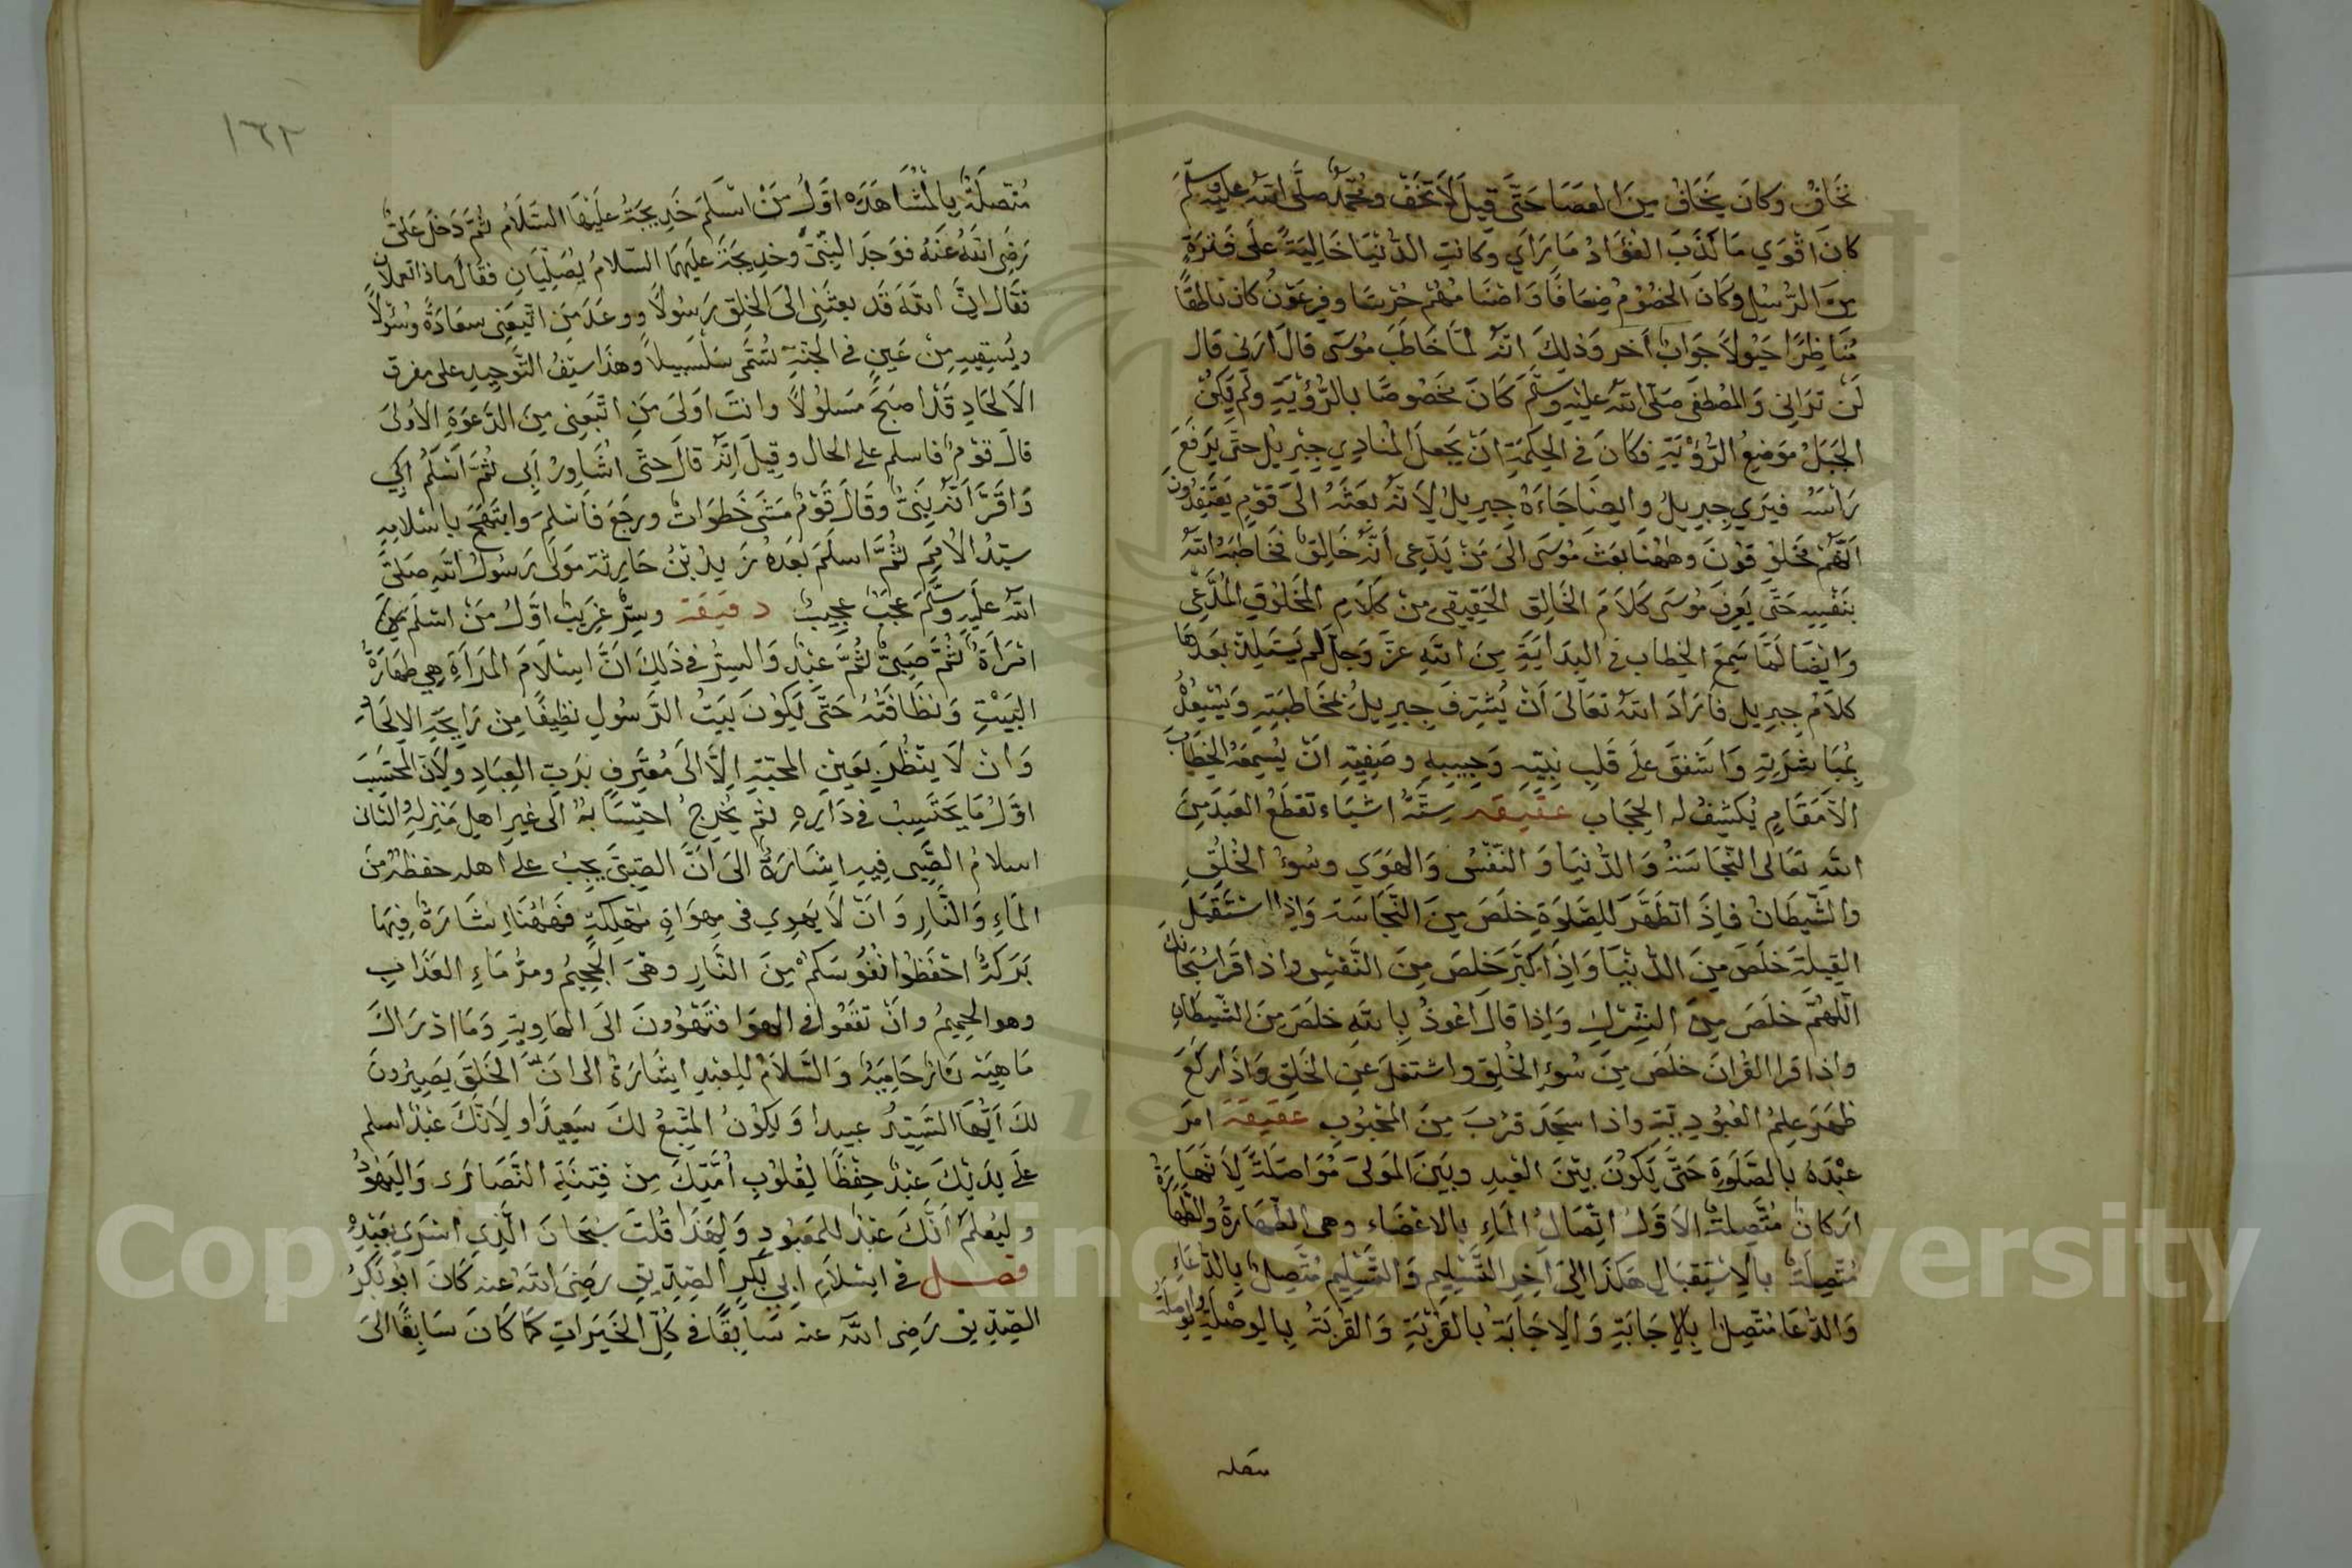 نخاف وكان يخاف من العصا حتى قيل لا تخف ومحمد صلى الله عليه وسلم
كان اقوي ما كذب الفؤاد ما راي وكانت الدنيا خالية على فترة
من الرسل وكان الخصوم ضعافا واصنامهم خرسا وفرعون كان ناطقا
مناظرا حيولا جواب آخر وذلك انه لما خاطب موسى قال ارني قال
لن تراني والمصطفى صلى الله عليه وسلم كان مخصوصا بالرؤية ولم يكن
الجبل موضع الرؤية فكان في الحكمة ان يجعل المنادي جبريل حتى يرفع
راسه فيري جبريل وايضا جاءه جبريل لانه بعثه الى قوم يعتقدون
انهم مخلوقون وههنا بعث موسى الى من يدعى انه خالق فخاطبه الله
بنفسه حتى يعرف موسى كلام الخالق الحقيقي من كلام المخلوق المدعى
وايضا لما سمع الخطاب في البداية من الله عز وجل لم يستلذ بعدها
كلام جبريل فاراد الله تعالى ان يشرف جبريل بمخاطبته ويسعد
بمباشرته واشفق على قلب نبيه وحبيبه وصفيه ان يسمعه الخطاب
الا مقام يكشف له الحجاب عقيقه ستة اشياء تقطع العبد من
الله تعالى النجاسة والدنيا والنفس والهوي وسوء الخلق
والشيطان فاذا تطهر للصلوة خلص من النجاسة واذا استقبل
القبلة خلص من الدنيا واذا كبر خلص من النفس واذا قرا سبحانك
اللهم خلص من الشرك واذا قال اعوذ بالله خلص من الشيطان
واذا قرا القران خلص من سوء الخلق واشتغل عن الخلق واذا ركع
ظهر علم العبودية واذا سجد قرب من المحبوب عقيقة امر
عبده بالصلوة حتى يكون بين العبد وبين المولى مواصلة لانها
اركان متصلة الاول اتصال الماء بالاعضاء وهي الطهارة والطهارة
متصلة بالاستقبال هكذا الى آخر التسليم والتسليم متصل بالدعاء
والدعا متصل بالاجابة والاجابة بالقربة والقربة بالوصلة والوصلة
متصلة
١٦٢
متصلة بالمشاهده اول من اسلم خديجة عليها السلام ثم دخل على
رضى الله عنه فوجد النبى وخديجة عليهما السلام يصليان فقال ماذا تعملان
فقال ان الله قد بعثنى الى الخلق رسولا ووعد من اتبعنى سعادة وسؤلا
ويسقيه من عين في الجنة تسمى سلسبيلا وهذا سيف التوحيد على مفرق
الالحاد قد اصبح مسلولا وانت اولى من اتبعنى من الدعوة الاولى
قال قوم فاسلم على الحال وقيل انه قال حتى اشاور ابى ثم اسلم اكي
واقر انه نبى وقال قوم مشى خطوات ورجع فاسلم وابتهج باسلامه
سيد الامم ثم اسلم بعده زيد بن حارثة مولى رسول الله صلى
الله عليه وسلم عجب عجيب دقيقة وسر غريب اول من اسلم
امراة ثم صبى ثم عبد والسر في ذلك ان اسلام المراة هي طهارة
البيت ونظافته حتى يكون بيت الرسول نظيفا من رايحة الالحاد
وان لا ينظر بعين المحبة الا الى معترف برب العباد ولان المحتسب
اول ما يحتسب في داره ثم يخرج احتسابه الى غير اهل منزله والثانى
اسلام الصبى فيه اشارة الى ان الصبى يجب على اهله حفظه من
الماء والنار وان لا يهوي في مهواة مهلكة فههنا اشارة فيها
بركة احفظوا نفوسكم من النار وهى الجحيم ومر ماء العذاب
وهو الحميم وان تقعوا في الهوا فتهوون الى الهاوية وما ادراك
ما هيه نار حامية والسلام للعبد اشارة الى ان الخلق يصيرون
لك ايها السيد عبيدا ويكون المتبع لك سعيدا ولانك عبد اسلم
على يديك عبد حفظا لقلوب امتك من فتنة النصارى واليهود
وليعلم انك عبد للمعبود ولهذا قلت سبحان الذي اسرى بعبده
فصل في اسلام ابي بكر الصديق رضى الله عنه كان ابو بكر
الصديق رضى الله عنه سابقا في كل الخيرات كما كان سابقا الى